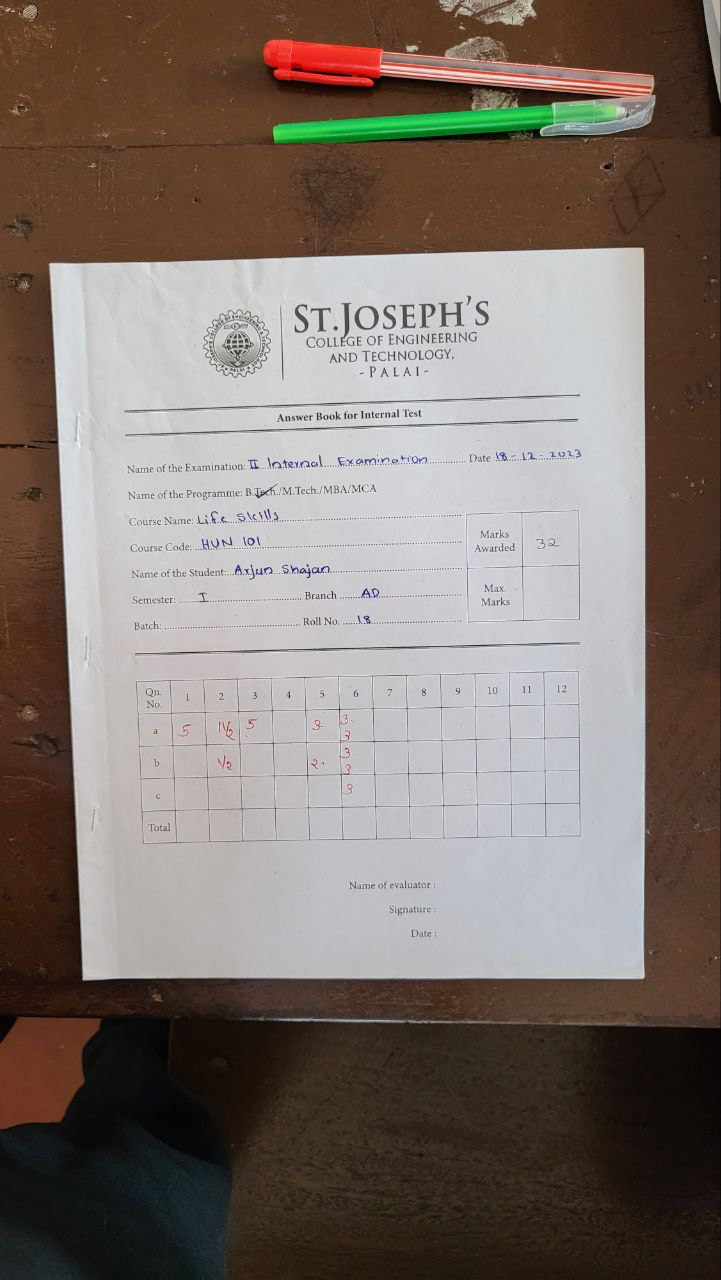 ST.JOSEPH'S
COLLEGE OF ENGINEERING
AND TECHNOLOGY,
- PALAI -
Answer Book for Internal Test
Name of the Examination: II Internal Examination Date 18-12-2023
Name of the Programme: B.Tech./M.Tech./MBA/MCA
Course Name: Life Skills
Course Code: HUN 101
Marks Awarded 32
Name of the Student: Arjun Shajan
Semester: I Branch AD
Max. Marks
Batch: Roll No. 18
Qn. No. 1 2 3 4 5 6 7 8 9 10 11 12
a 5 1½ 5 3 3 3
b ½ 2 3 3
c 3
Total
Name of evaluator :
Signature :
Date :